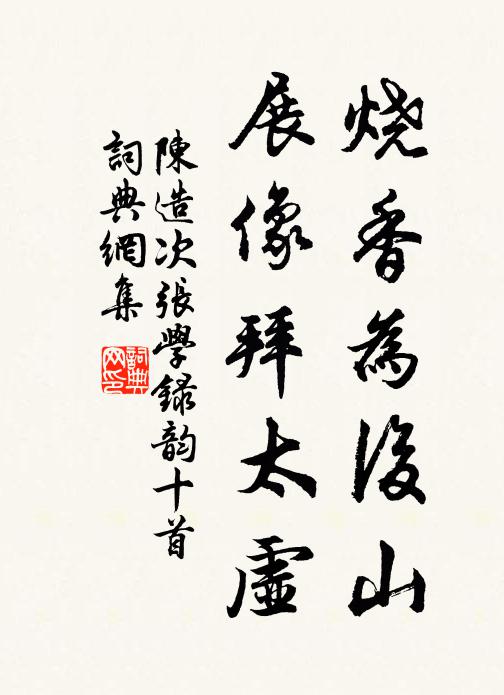 烧香為後山
展像拜太虛
陳造次張學録韵十首
詞典網集
詞典網印